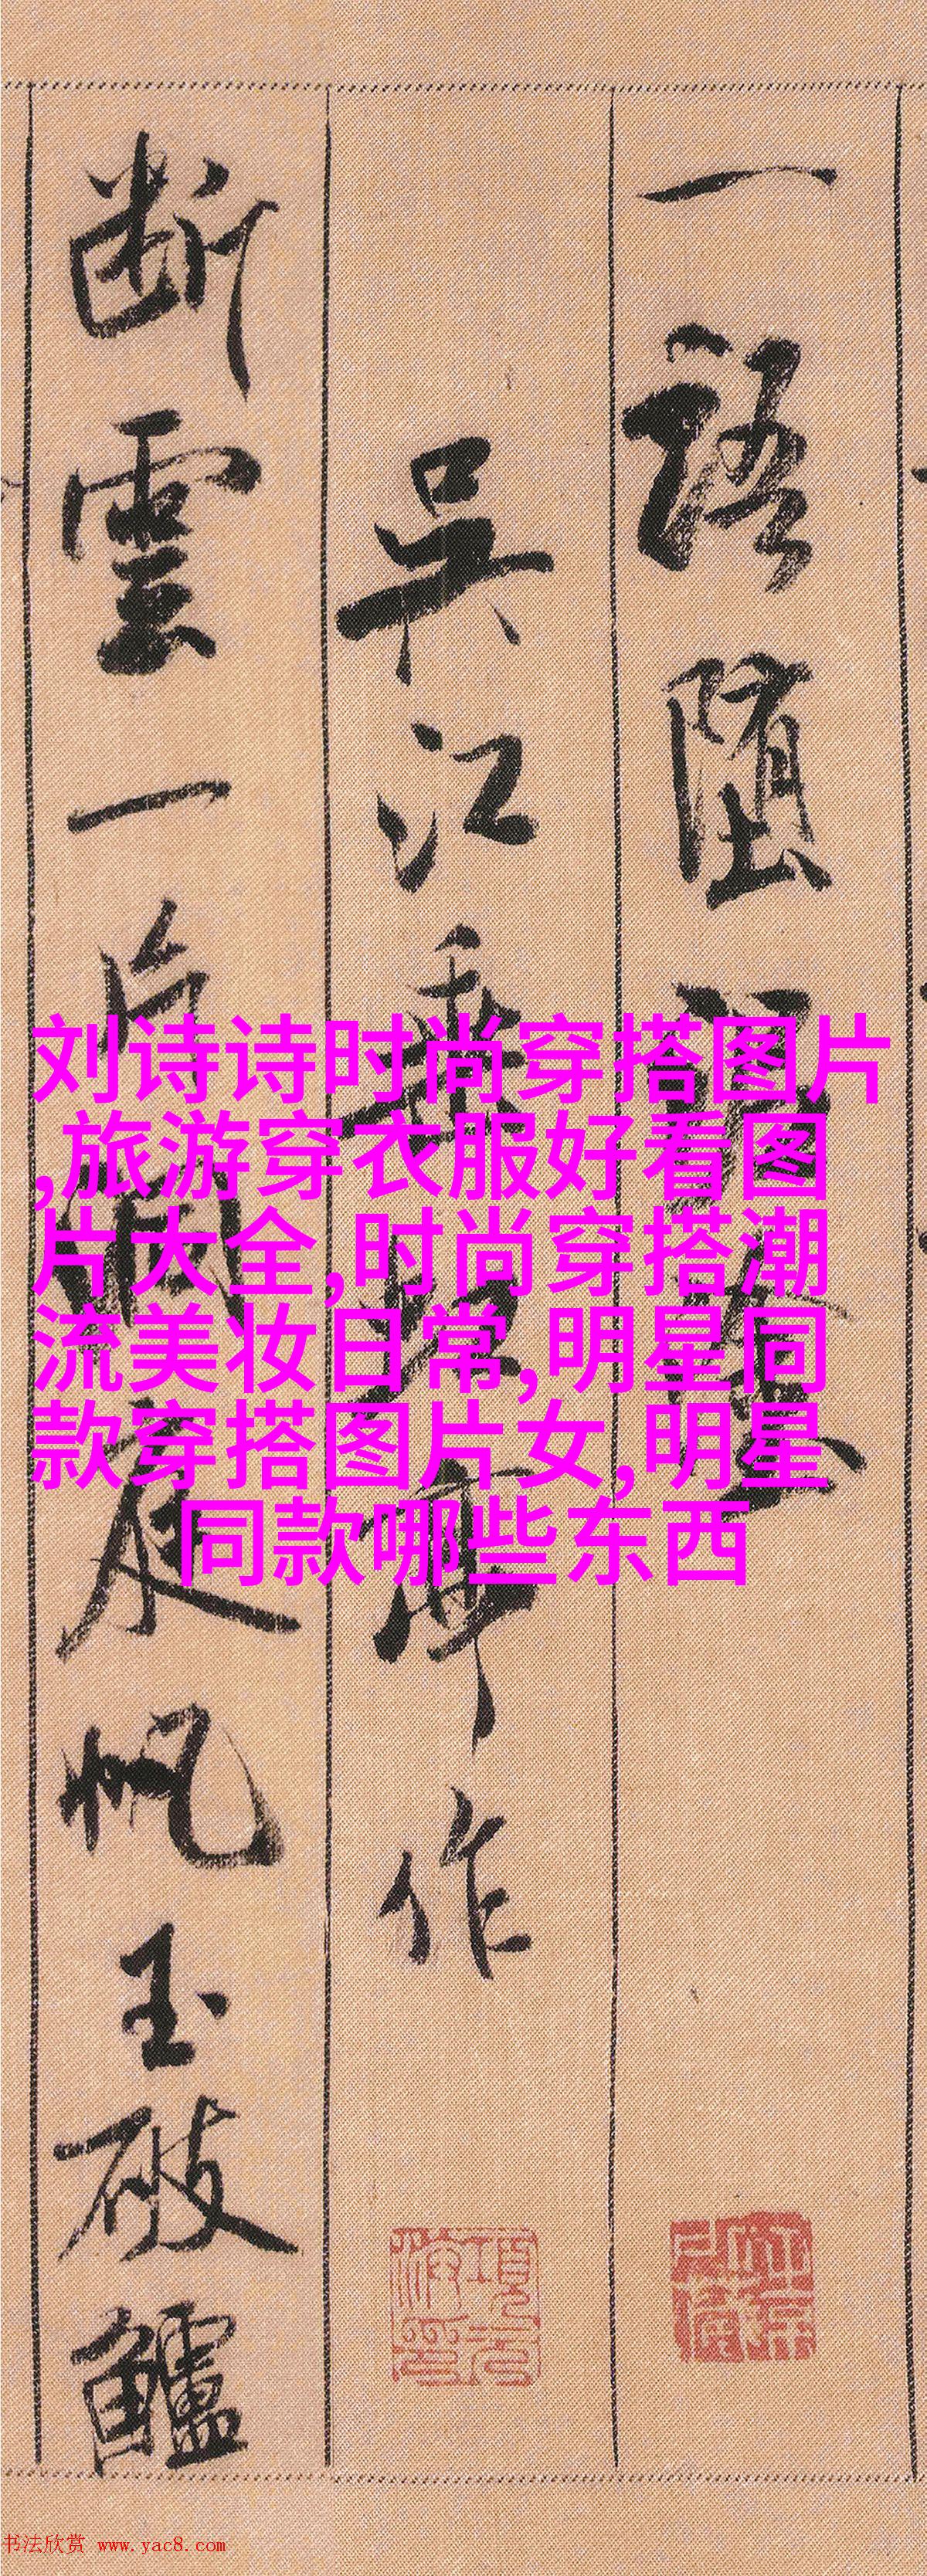 一語墮泥塗
吳江垂虹亭作
断雲一片洞庭帆玉破鱸
刘诗诗时尚穿搭图片
,旅游穿衣服好看图
片大全,时尚穿搭潮
流美妆日常,明星同
款穿搭图片女,明星
同款哪些东西
书法欣赏 www.yac8.com